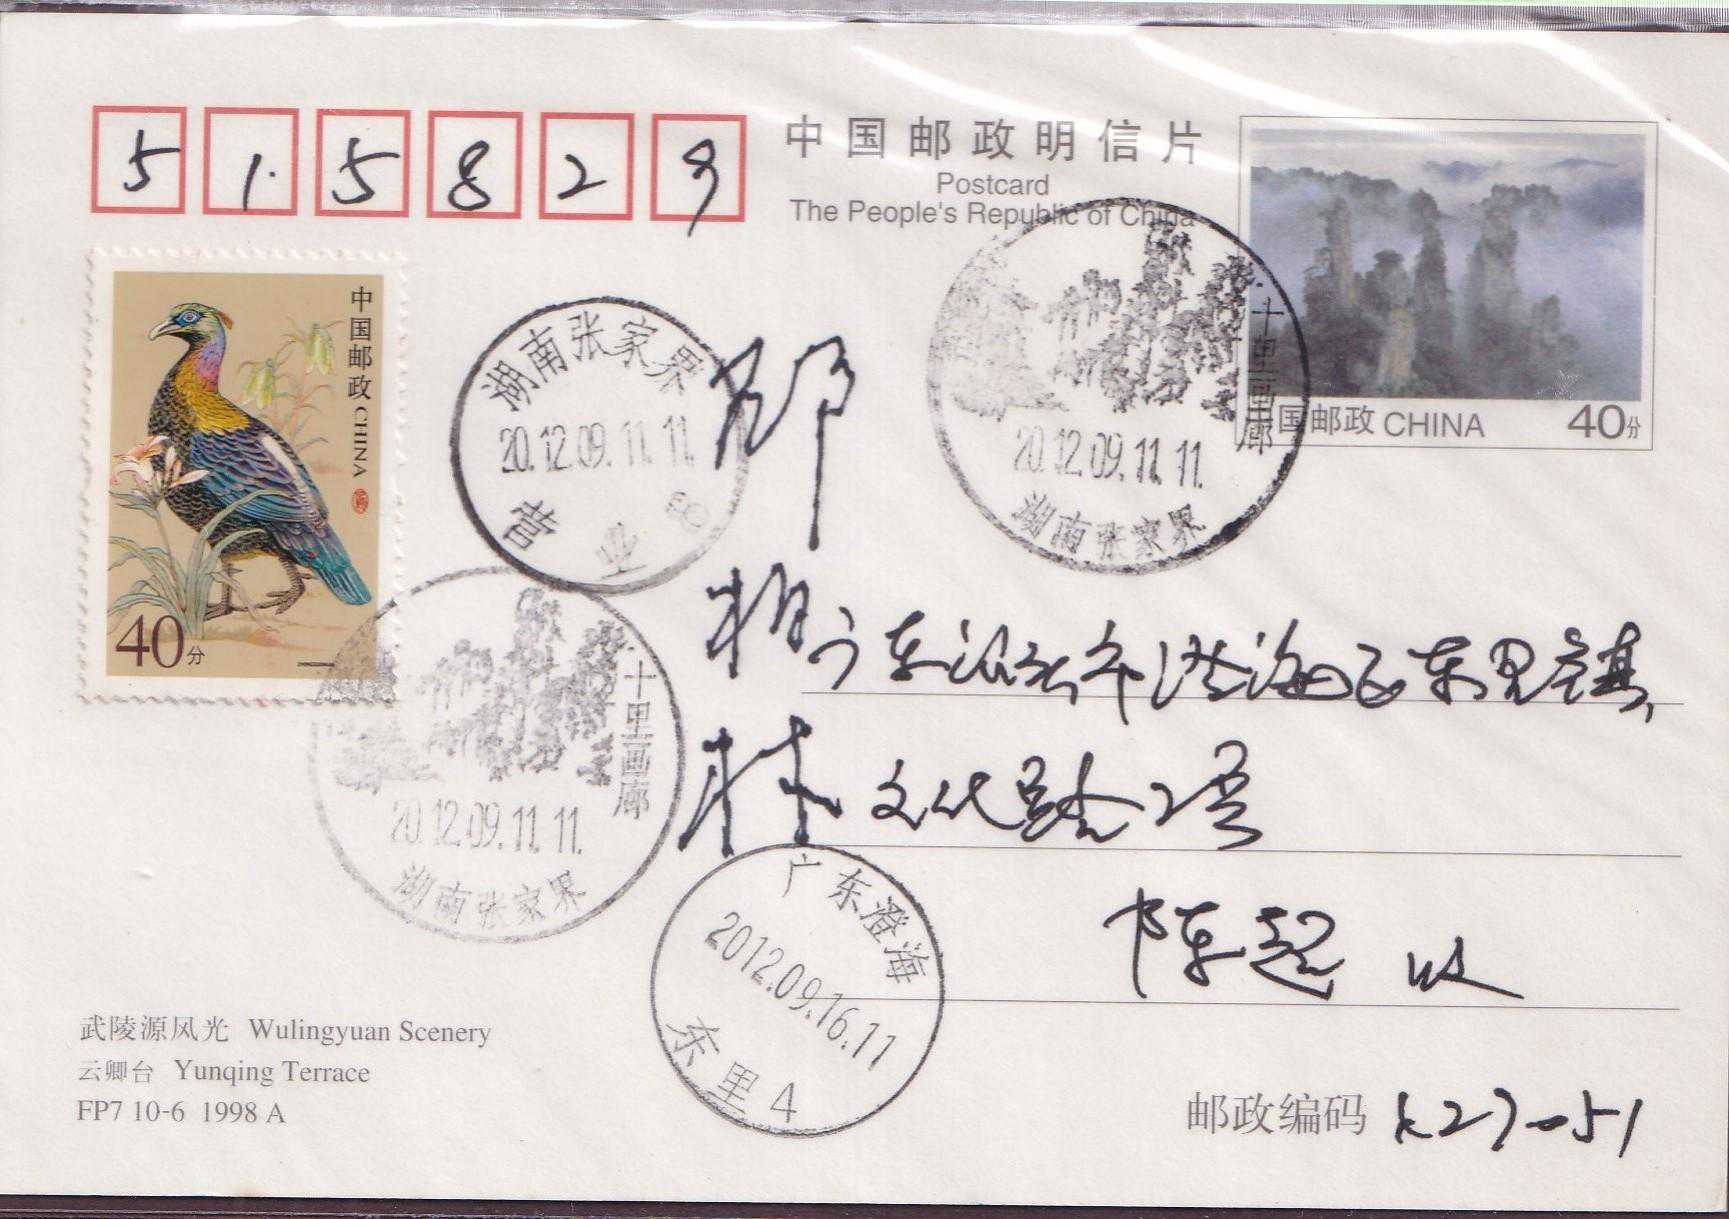 515829
中国邮政明信片
Postcard
The People's Republic of China
中国邮政 CHINA
40分
国邮政 CHINA 40分
湖南张家界
20.12.09.11.11.
营业
十里画廊
20.12.09.11.11.
湖南张家界
十里画廊
20.12.09.11.11.
湖南张家界
邓
相
林
广东汕头市澄海区东里镇
文化路2号
陈超 收
广东澄海
2012.09.16.11
东里4
武陵源风光 Wulingyuan Scenery
云卿台 Yunqing Terrace
FP7 10-6 1998 A
邮政编码